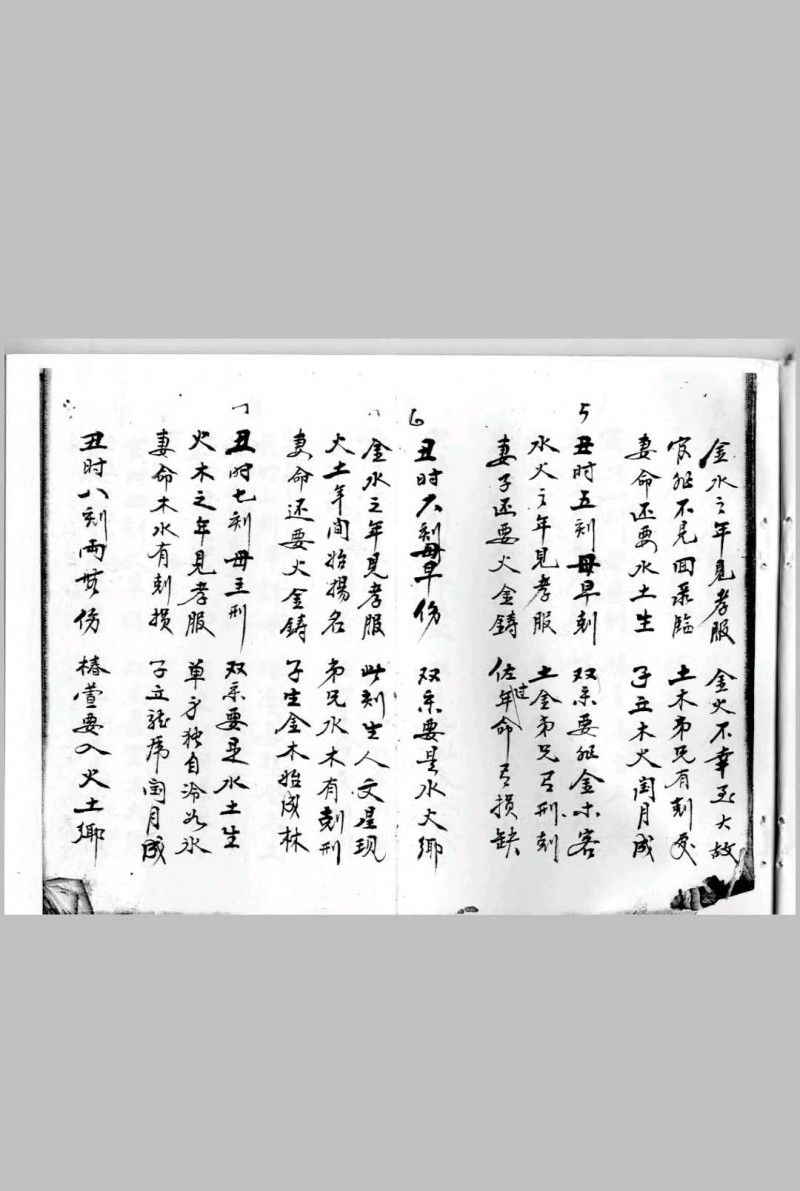 金水之年見孝服 金火不幸至大故
官 不見回 臨 土木弟兄有刻
妻命还要水土生 子丑木火闰月成
5
丑时五刻母早刻 双亲要 金木客
水火之年見孝服 土金弟兄 刑刻
妻子还要火金鋳 佐过年命 损缺
6
丑时六刻母早伤 双亲要是水火鄉
金水之年見孝服 此刻生人文星现
火土年间始揚名 弟兄水木有剋刑
妻命还要火金鋳 子生金木始成林
丑时七刻母主刑 双亲要是水土生
火木之年見孝服 单身独自冷如冰
妻命木水有剋损 子立龙虎闰月成
丑时八刻両 伤 椿萱要入火土鄉